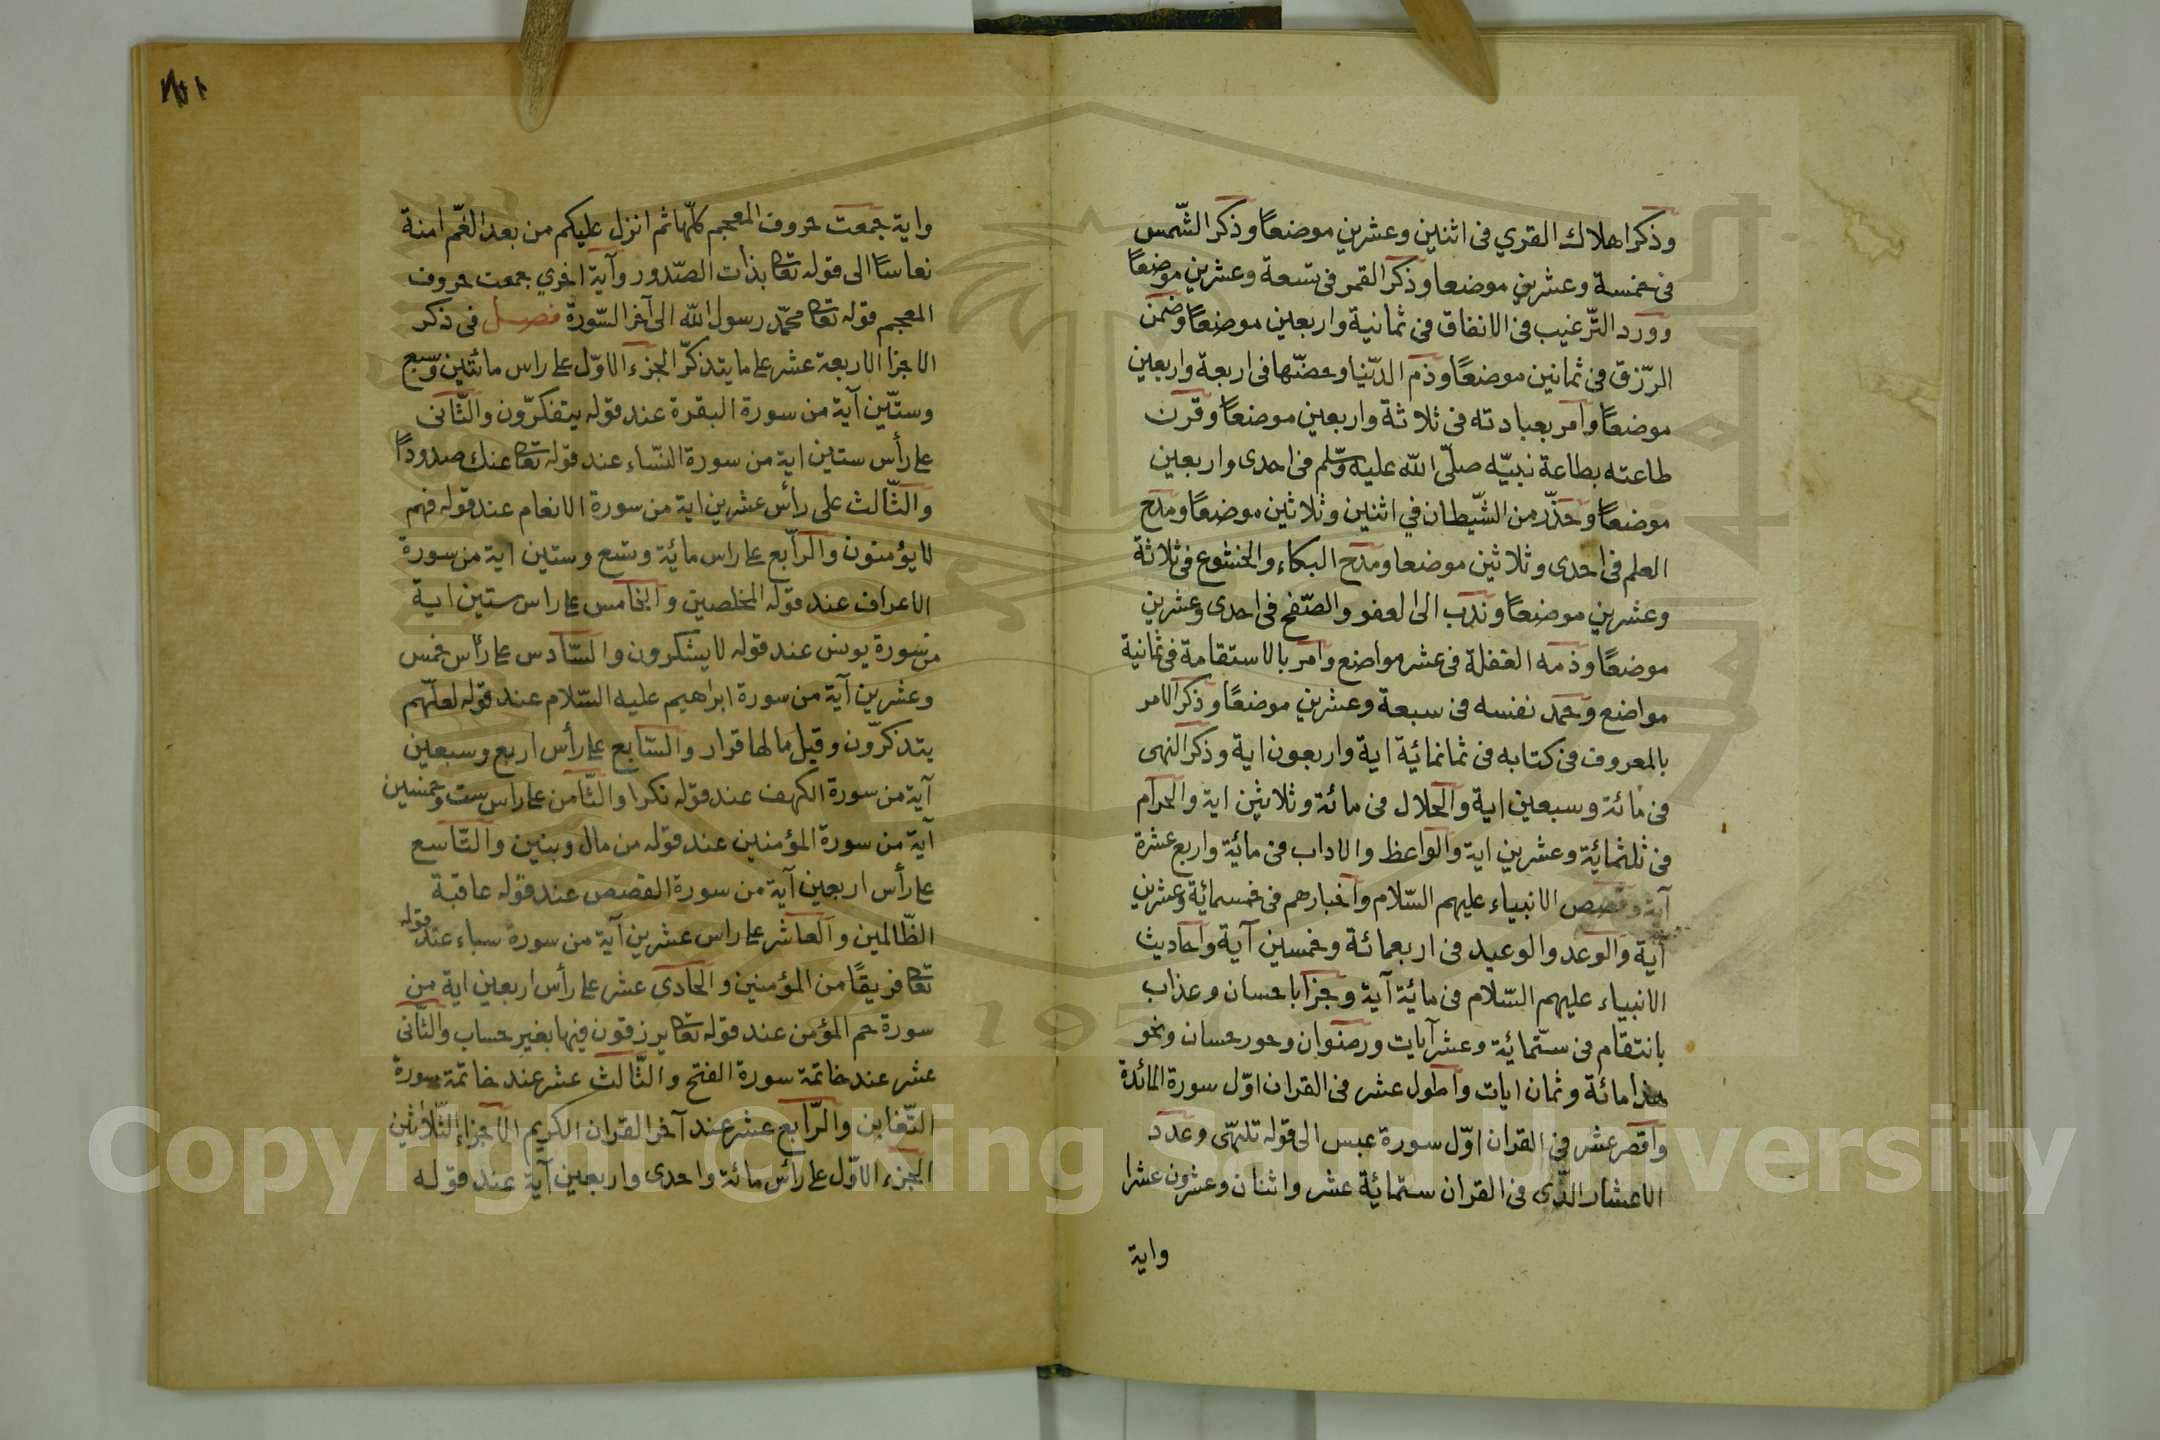 وذكر اهلاك القري فى اثنين وعشرين موضعًا وذكر الشّمس
فى خمسة وعشرين موضعا وذكر القمر فى تسعة وعشرين موضعًا
وورد التّرغيب فى الانفاق فى ثمانية واربعين موضعًا وضمن
الرّزق فى ثمانين موضعًا وذم الدّنيا وحضّها فى اربعة واربعين
موضعًا وامر بعبادته فى ثلاثة واربعين موضعًا وقرن
طاعته بطاعة نبيّه صلّى الله عليه وسّلم فى احدى واربعين
موضعًا وحذّر من الشّيطان في اثنين وثلاثين موضعًا ومدح
العلم فى احدى وثلاثين موضعا ومدح البكاء والخشوع فى ثلاثة
وعشرين موضعًا وندب الى العفو والصّفح فى احدى وعشرين
موضعًا وذمه الغفلة فى عشر مواضع وامر بالاستقامة فى ثمانية
مواضع وحمد نفسه فى سبعة وعشرين موضعًا وذكر الامر
بالمعروف فى كتابه فى ثمانمائية اية واربعون اية وذكر النهى
فى مائة وسبعين اية والحلال فى مائة وثلاثين اية والحرام
فى ثلثمائية وعشرين اية والواعظ والاداب فى مائية واربع عشرة
آية وقصص الانبياء عليهم السّلام واخبارهم فى خمسمائية وعشرين
آية والوعد والوعيد فى اربعمائة وخمسين آية واحاديث
الانبياء عليهم السّلام فى مائية آية وجزا باحسان وعذاب
بانتقام فى ستّمائية وعشر آيات ورضوان وحور حسان ونحو
هذا مائة وثمان ايات واطول عشر فى القران اوّل سورة المائدة
واقصر عشر فى القران اوّل سورة عبس الى قوله تلهّى وعدد
الاعشار الّذى فى القران ستمائية عشر واثنان وعشرون عشرا
واية
واية جمعت حروف المعجم كلّها ثم انزل عليكم من بعد الغّم امنة
نعاسًا الى قوله تعا بذات الصّدور وآية اخرى جمعت حروف
المعجم قوله تعا محمّد رسول الله الى آخر السّورة فصل فى ذكر
الاجزا الاربعة عشر على ما يتذكّر الجزء الاوّل على راس مائتين وسبع
وستّين آية من سورة البقرة عند قوله يتفكرّون والثّانى
على رأس ستين اية من سورة النسّاء عند قوله تعا عنك صدودًا
والثّالث على رأس عشرين اية من سورة الانعام عند قوله فهم
لا يؤمنون والرّابع على راس مائية وسبع وستين اية من سورة
الاعراف عند قوله المخلصين والخامس على راس ستين اية
من سورة يونس عند قوله لا يشكرون والسّادس على رأس خمس
وعشرين آية من سورة ابراهيم عليه السّلام عند قوله لعلّهم
يتذكرّون وقيل مالها قرار والسّابع على رأس اربع وسبعين
آية من سورة الكهف عند قوله نكرا والثّامن على راس ست وخمسين
آية من سورة المؤمنين عند قوله من مال وبنين والتّاسع
على رأس اربعين آية من سورة القصص عند قوله عاقبة
الظّالمين والعاشر على راس عشرين آية من سورة سباء عند قوله
تعا فريقًا من المؤمنين والحادى عشر على رأس اربعين اية من
سورة حم المؤمن عند قوله تعا يرزقون فيها بغير حساب والثّانى
عشر عند خاتمة سورة الفتح والثّالث عشر عند خاتمة سورة
التّغابن والرّابع عشر عند آخر القران الكريم الاجزاء الثّلاثين
الجزء الاوّل على رأس مائة واحدى واربعين آية عند قوله
Copyright © King Saud University